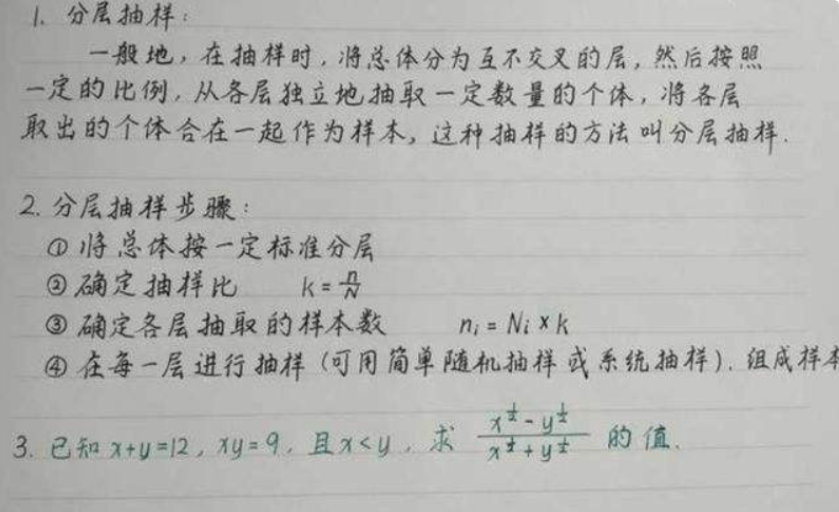 1. 分层抽样：
一般地，在抽样时，将总体分为互不交叉的层，然后按照
一定的比例，从各层独立地抽取一定数量的个体，将各层
取出的个体合在一起作为样本，这种抽样的方法叫分层抽样.
2. 分层抽样步骤：
① 将总体按一定标准分层
② 确定抽样比 k = n/N
③ 确定各层抽取的样本数 nᵢ = Nᵢ × k
④ 在每一层进行抽样（可用简单随机抽样或系统抽样）. 组成样本
3. 已知 x+y=12，xy=9，且x<y，求 (x^(1/2) - y^(1/2))/(x^(1/2) + y^(1/2)) 的值.